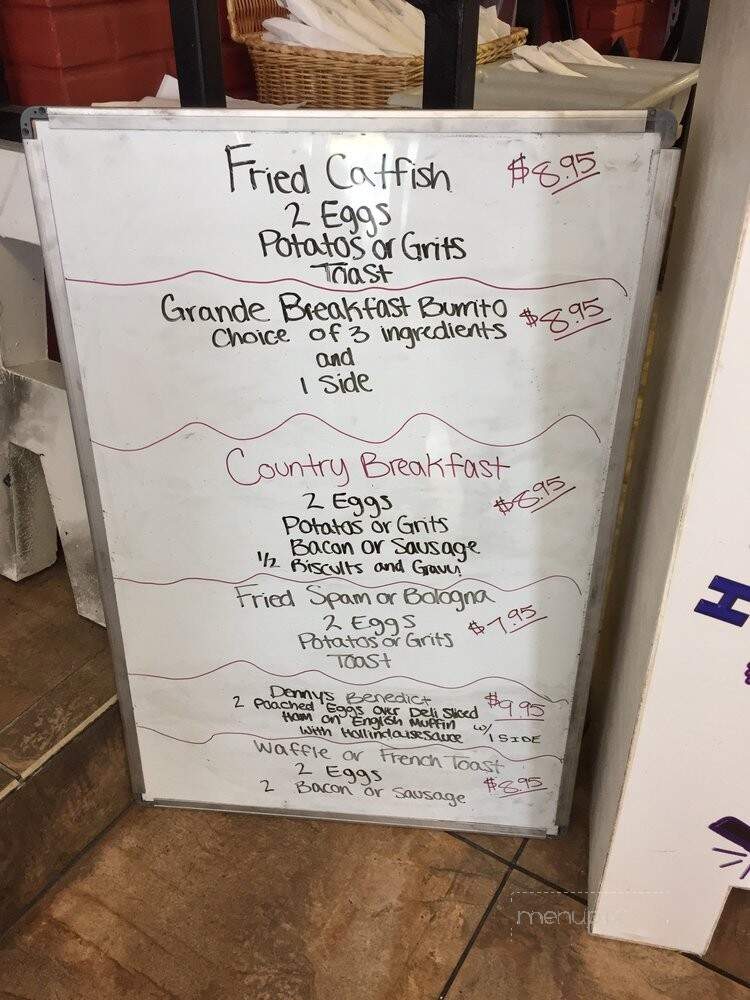 Fried Catfish $8.95
2 Eggs
Potatos or Grits
Toast
Grande Breakfast Burrito $8.95
Choice of 3 ingredients
and
1 Side
Country Breakfast
2 Eggs $8.95
Potatos or Grits
Bacon or Sausage
1/2 Biscuits and Gravy
Fried Spam or Bologna
2 Eggs $7.95
Potatos or Grits
Toast
Denny's Benedict $9.95
2 Poached Eggs over Deli Sliced
Ham on English Muffin w/
with Hollindaise sauce 1 SIDE
Waffle or French Toast
2 Eggs $8.95
2 Bacon or Sausage
H